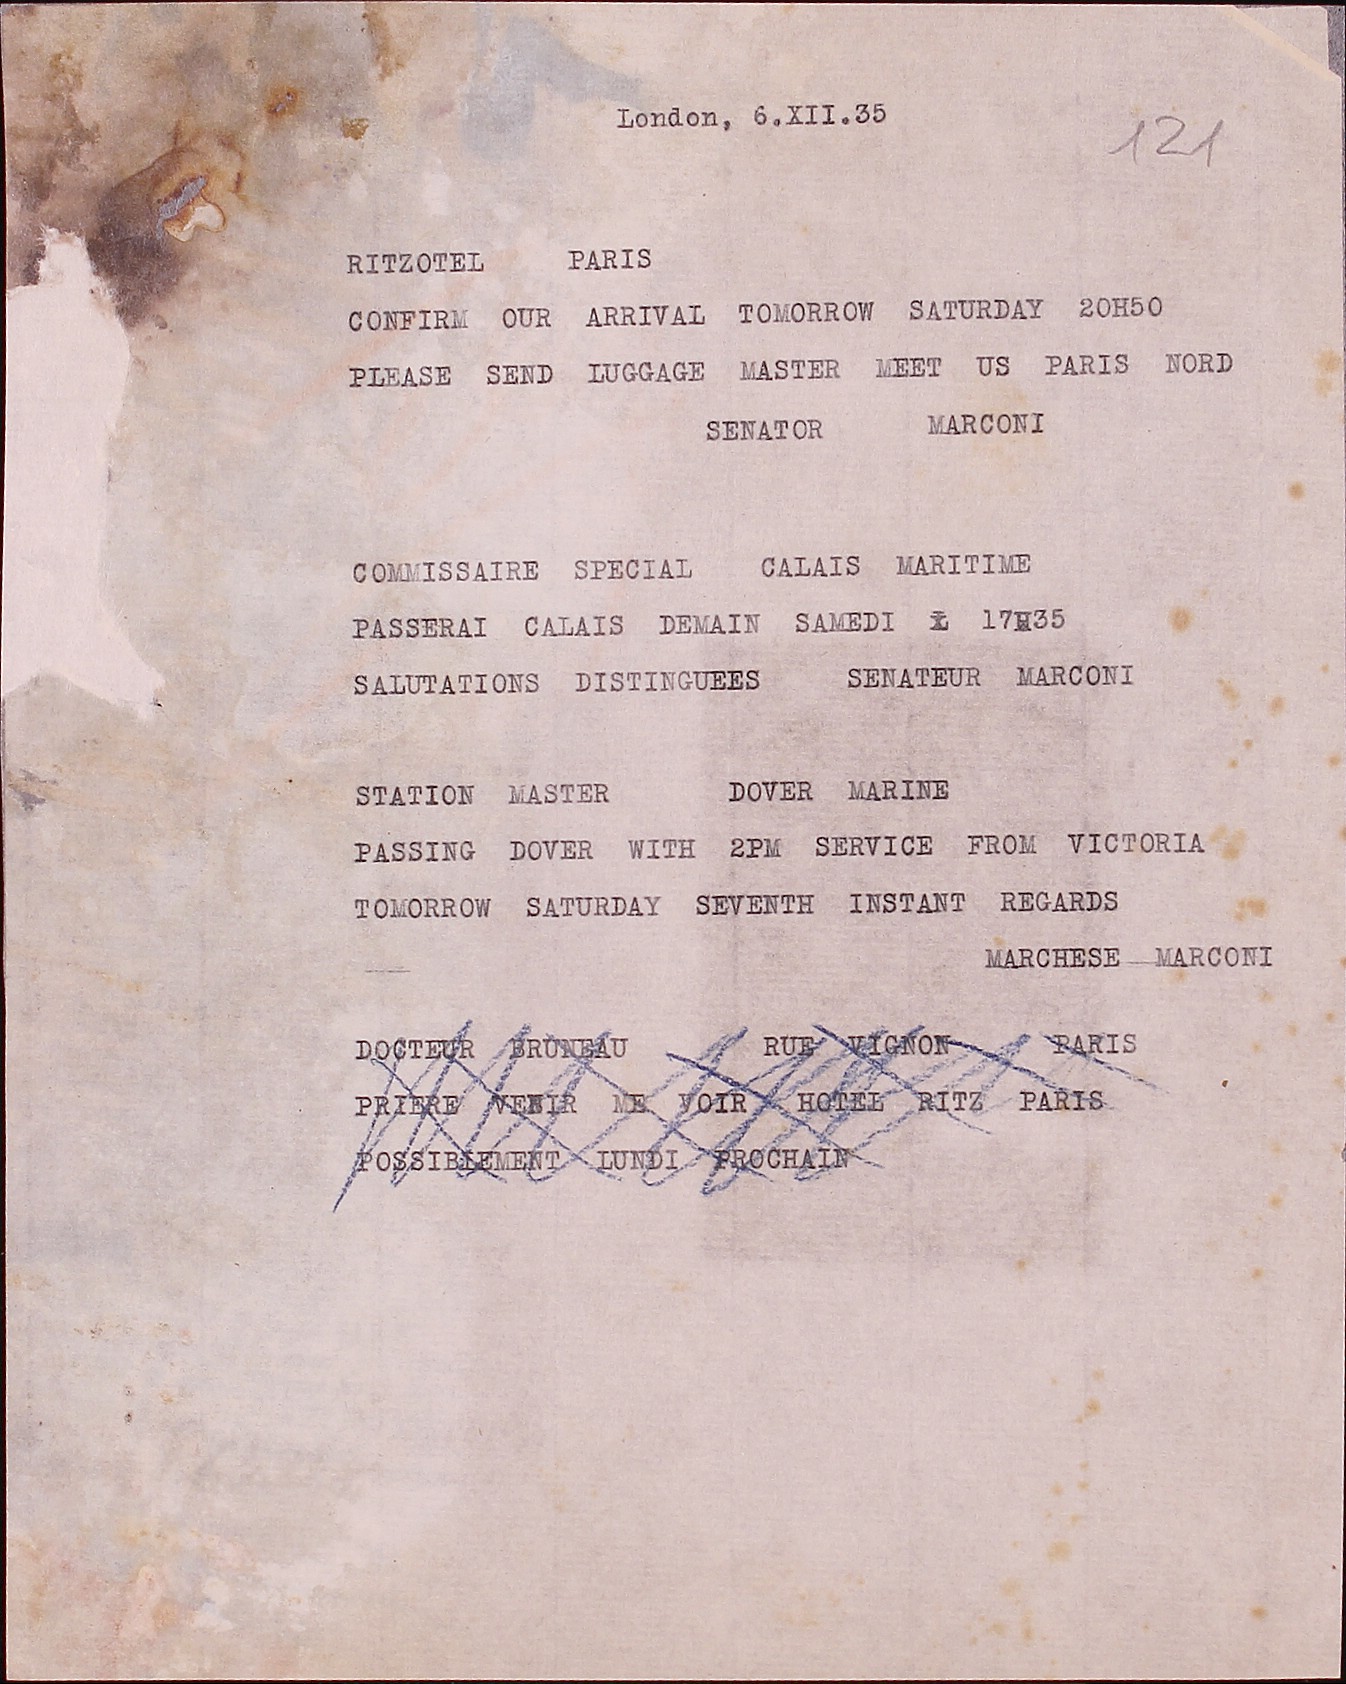 London, 6.XII.35
121
RITZOTEL PARIS
CONFIRM OUR ARRIVAL TOMORROW SATURDAY 20H50
PLEASE SEND LUGGAGE MASTER MEET US PARIS NORD
SENATOR MARCONI
COMMISSAIRE SPECIAL CALAIS MARITIME
PASSERAI CALAIS DEMAIN SAMEDI 17H35
SALUTATIONS DISTINGUEES SENATEUR MARCONI
STATION MASTER DOVER MARINE
PASSING DOVER WITH 2PM SERVICE FROM VICTORIA
TOMORROW SATURDAY SEVENTH INSTANT REGARDS
MARCHESE MARCONI
DOCTEUR BRUNEAU RUE VIGNON PARIS
PRIERE VENIR ME VOIR HOTEL RITZ PARIS
POSSIBLEMENT LUNDI PROCHAIN